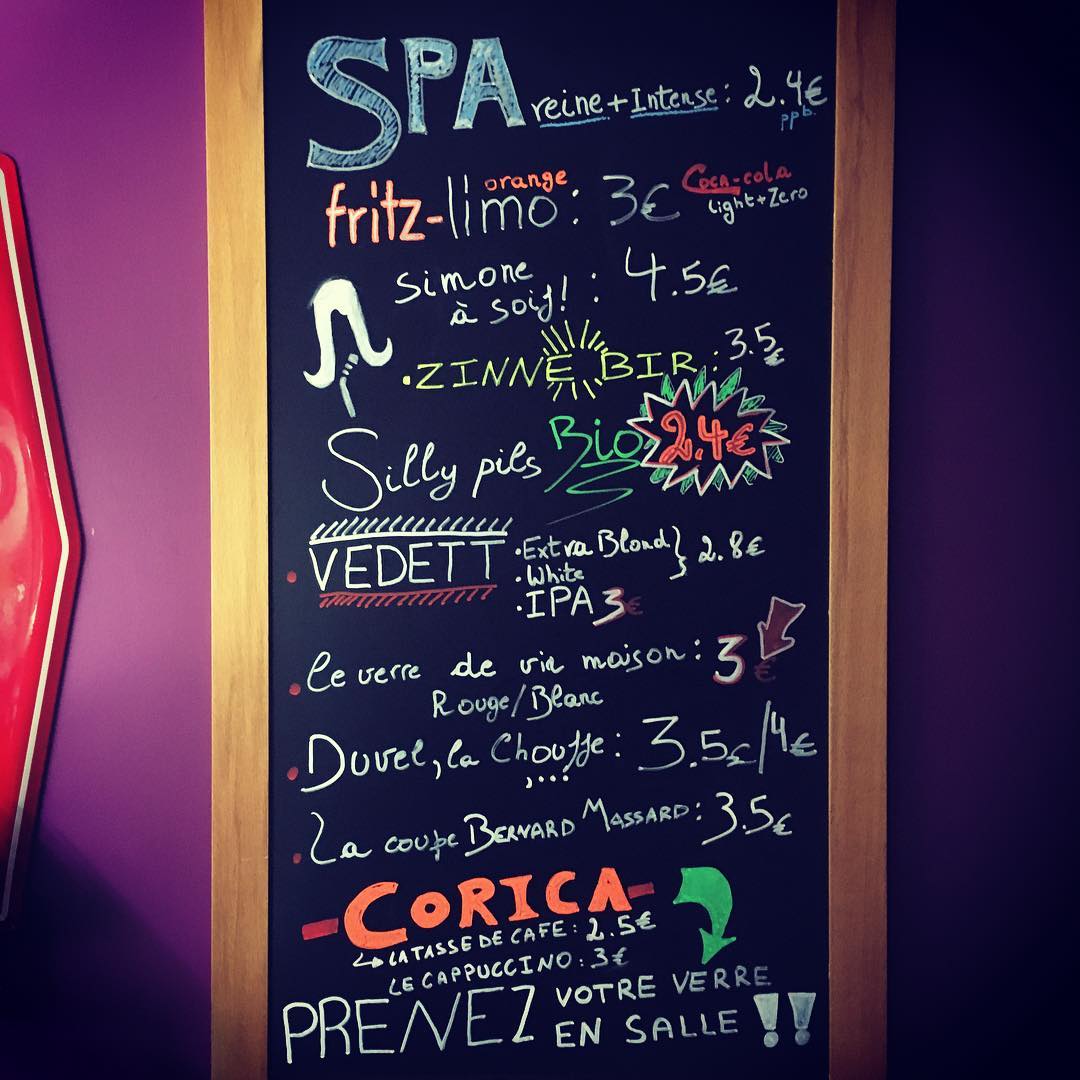 SPA reine + Intense : 2.4€
ppb.
fritz-limo orange : 3€ Coca-cola
light + Zero
simone
à soif! : 4.5€
. ZINNE BIR : 3.5€
Silly pils Bio 2.4€
. VEDETT . Extra Blond } 2.8€
. White
. IPA 3€
. le verre de vin maison : 3€
Rouge/Blanc
. Duvel, la Chouffe : 3.5€/4€
,...
. La coupe BERNARD MASSARD : 3.5€
- CORICA -
LA TASSE DE CAFE : 2.5€
LE CAPPUCCINO : 3€
PRENEZ VOTRE VERRE
EN SALLE !!